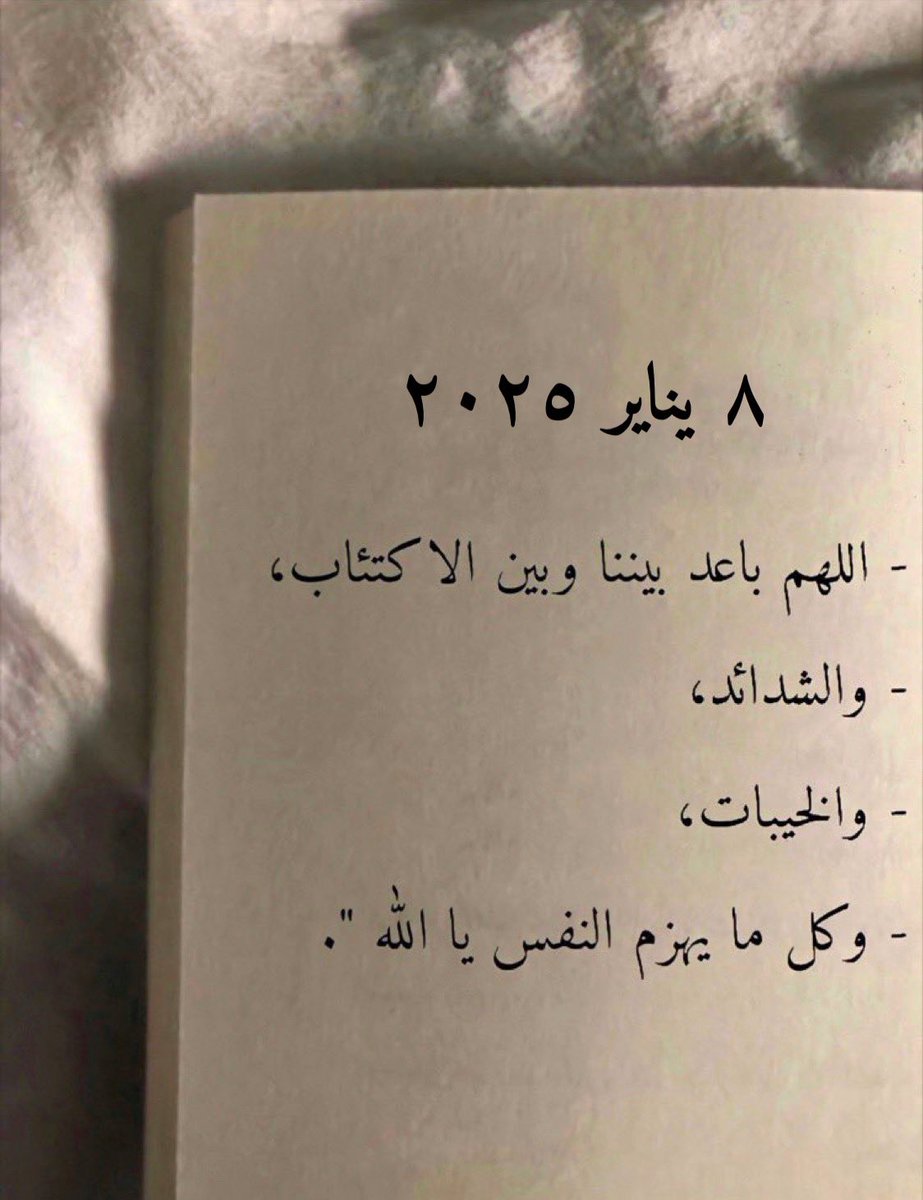 ٨ يناير ٢٠٢٥
- اللهم باعد بيننا وبين الاكتئاب،
- والشدائد،
- والخيبات،
- وكل ما يهزم النفس يا الله ".